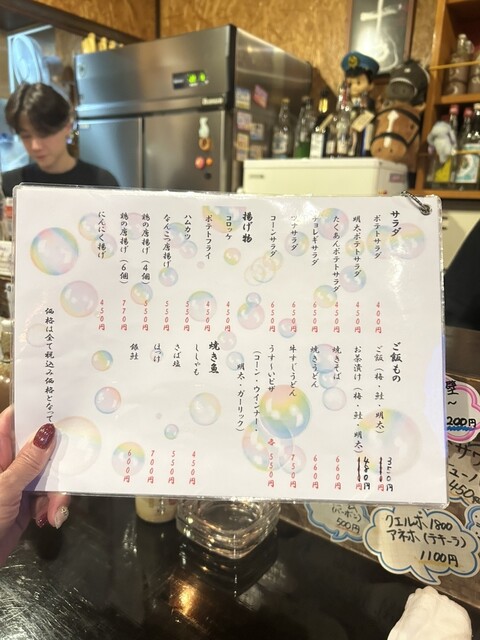 サラダ
ポテトサラダ 400円
明太ポテトサラダ 450円
たくあんポテトサラダ 450円
チョレギサラダ 650円
ツナサラダ 650円
コーンサラダ 650円
揚げ物
コロッケ 450円
ポテトフライ 450円
ハムカツ 550円
なんこつ唐揚げ 550円
鶏の唐揚げ(4個) 550円
鶏の唐揚げ(6個) 770円
にんにく揚げ 450円
ご飯もの
ご飯(梅・鮭・明太) 350円
お茶漬け(梅・鮭・明太) 450円
焼きそば 660円
焼きうどん 660円
牛すじうどん 750円
うす〜いピザ
(コーン・ウインナー・
明太・ガーリック) 各550円
焼き魚
ししゃも 450円
さば塩 550円
ほっけ 700円
銀鮭 600円
価格は全て税込み価格となって
200円
500円
クエルボ 1800
アネホ(テキーラ)
1100円